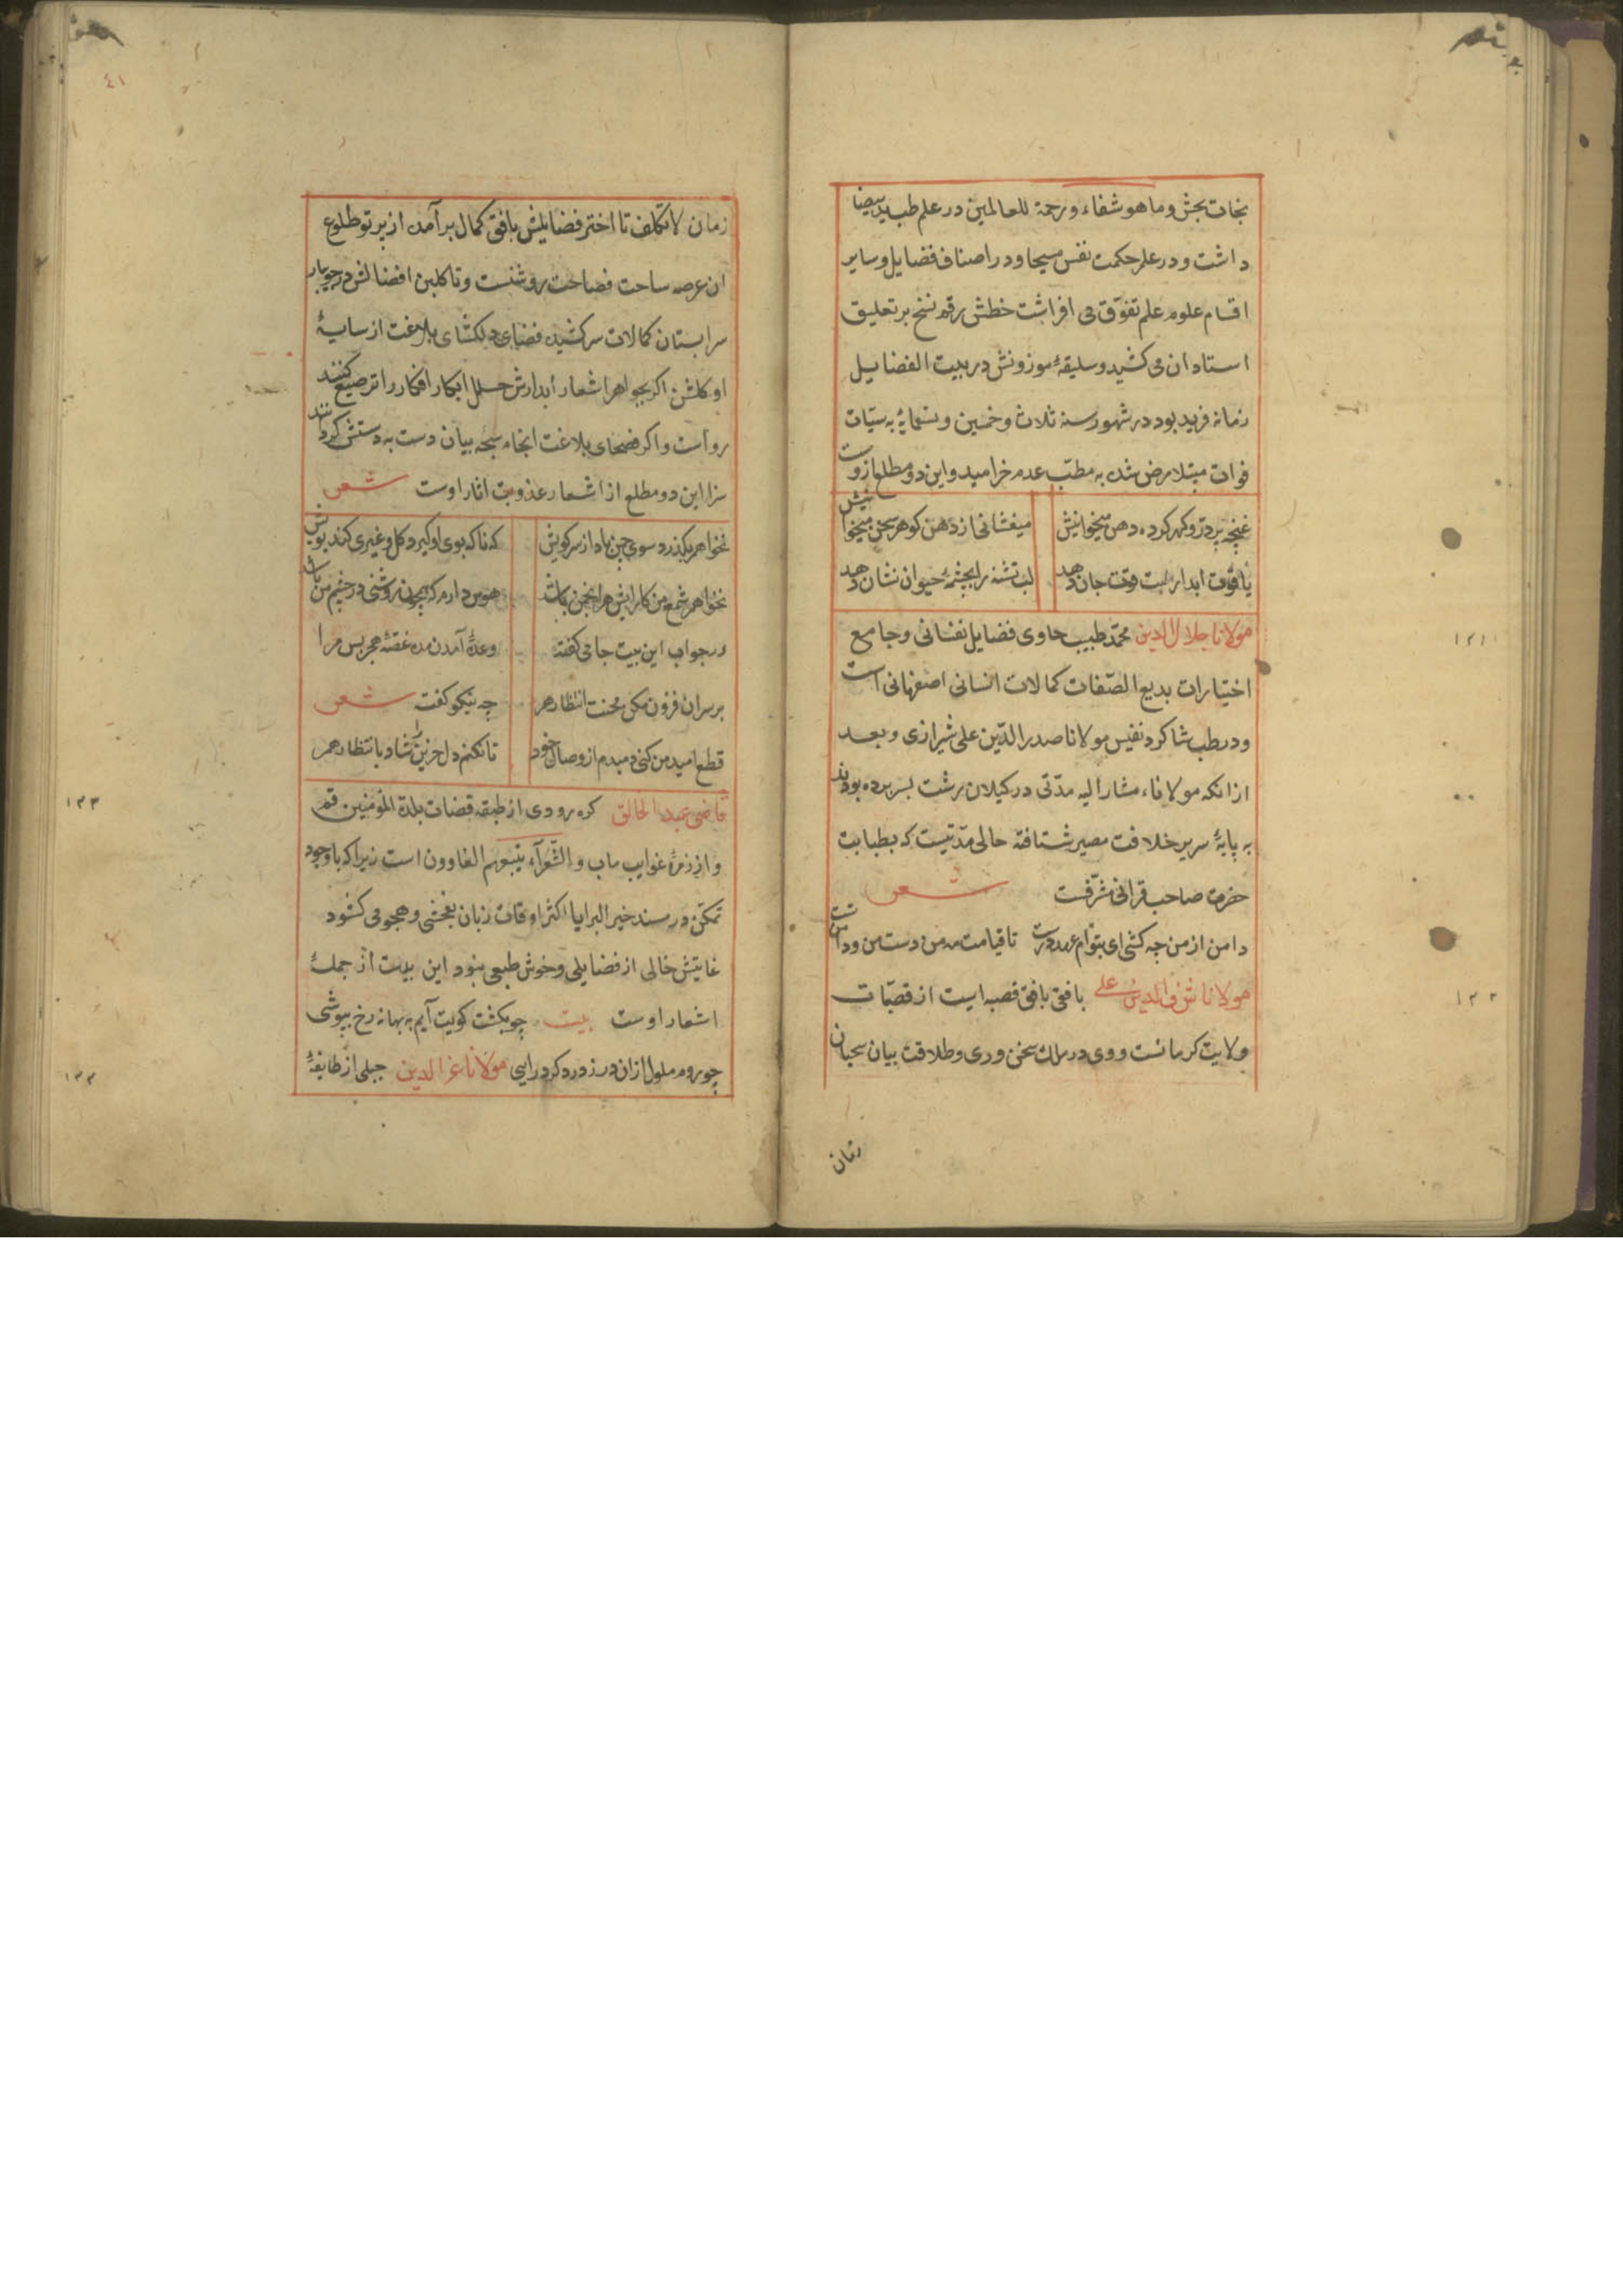 نجات بخش وما هو شفاء ورحمة للعالمین در علم طب ید بیضا
داشت ودر علم حکمت نفس مسیحا ودر اصناف فضایل وسایر
اقسام علوم علم تفوّق می افراشت خطش رقم نسخ بر تعلیق
استادان می کشید وسلیقهٔ موزونش در بیت الفضایل
زمانه فرید بود در شهور سنه ثلاث وخمسین وتسمایٔه به سیّات
فوات مبتلا مرض شده به مطبّ عدم خرامید واین دو مطلع ازوست
غنچه پر درّ وکهر کرده دهن میخوانیش
میفشانی از دهن کوهر سخن میخوانیش
یاقوت ابدار لبت قوت جان دهد
لب تشنه را بچشمهٔ حیوان نشان دهد
مولانا جلال الدین محمّد طبیب حاوی فضایل نفسانی وجامع
١٢١
اختیارات بدیع الصّفات کمالات انسانی اصفهانی است
ودر طب شاکرد نفیس مولانا صدر الدّین علی شیرازی وبعد
از انکه مولاناء مشار الیه مدّتی در کیلان برشت بسر برده بودند
به پایهٔ سریر خلافت مصیر شتافته حالی مدّتیست که بطبابت
حضرت صاحب قرانی مشرّفست شعر
دامن از من چه کشی ای بتو ام عهد درست تا قیامت مه من دست من ودامنت
مولانا شرف الدین علی بافقی بافق قصبه ایست از قصبّات
١٢٢
ولایت کرمانست ووی در ملك سخن وری وطلاقت بیان سحبان
زمان
٤١
زمان لاتکلف تا اختر فضایلش بافق کمال برآمده از پرتو طلوع
ان عرصه ساحت فصاحت روشنست وتا کلبن افضالش در جویبار
سرابستان کمالات سرکشیده فضای دلکشای بلاغت از سایهٔ
او کلشن اکر بجواهر اشعار أبدارش حلل ابکار افکار را ترصیع کنند
رواست واکر فصحای بلاغت انجام سبحه بیان دست به دستش کردانند
سزا این دو مطلع از اشعار عذوبت اثار اوست شعر
نخواهم بکذرد سوی چمن باد از سر کویش
که ناکه بوی او کیرد کل وغیری کند بویش
نخواهم شمع من کارایش هر انجمن باشد
هوس دارم که همچون روشنی در چشم من باشد
در جواب این بیت جامی کفته
وعدهٔ آمدن مده غصّهٔ هجر بس مرا
بر سر ان فزون مکن محنت انتظار هم
چه نیکو کفته شعر
قطع امید من کنی دمبدم از وصال خود
تا نکنم دل حزین شاد بانتظار هم
قاضی عبد الخالق کره رودی از طبقه قضات بلدة المؤمنین قم
١٢٣
واز زمرهٔ غوایب ماب والشّعرآء یتبعهم الغاوون است زیرا که باوجود
تمکّن در مسند خیر البرایا اکثر اوقات زبان بفحش وهجو می کشود
غایتش خالی از فضایلی وخوش طبعی نبود این بیت از جملهٔ
اشعار اوست بیت چو بکشت کویت آیم به بهانه رخ بپوشی
چو روم ملول ازان در ز در دکر درایی مولانا عز الدین جبلی از طایفهٔ
١٢٤